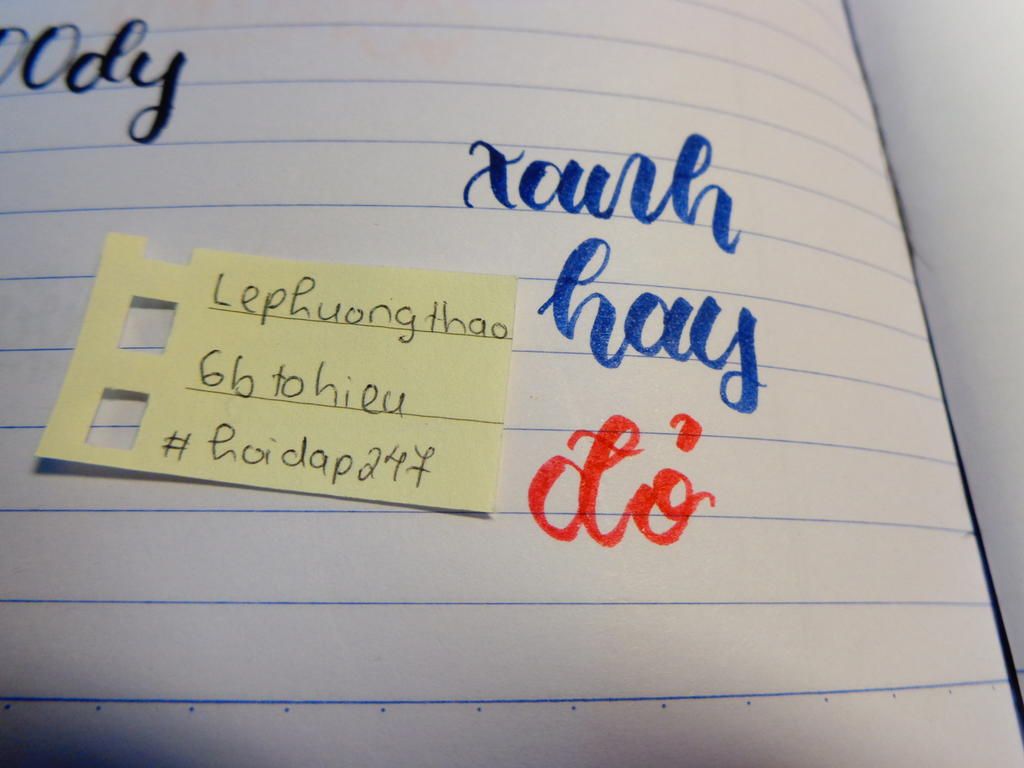 xanh
hay
đỏ
Lephuongthao
6b tohieu
# hoidap247